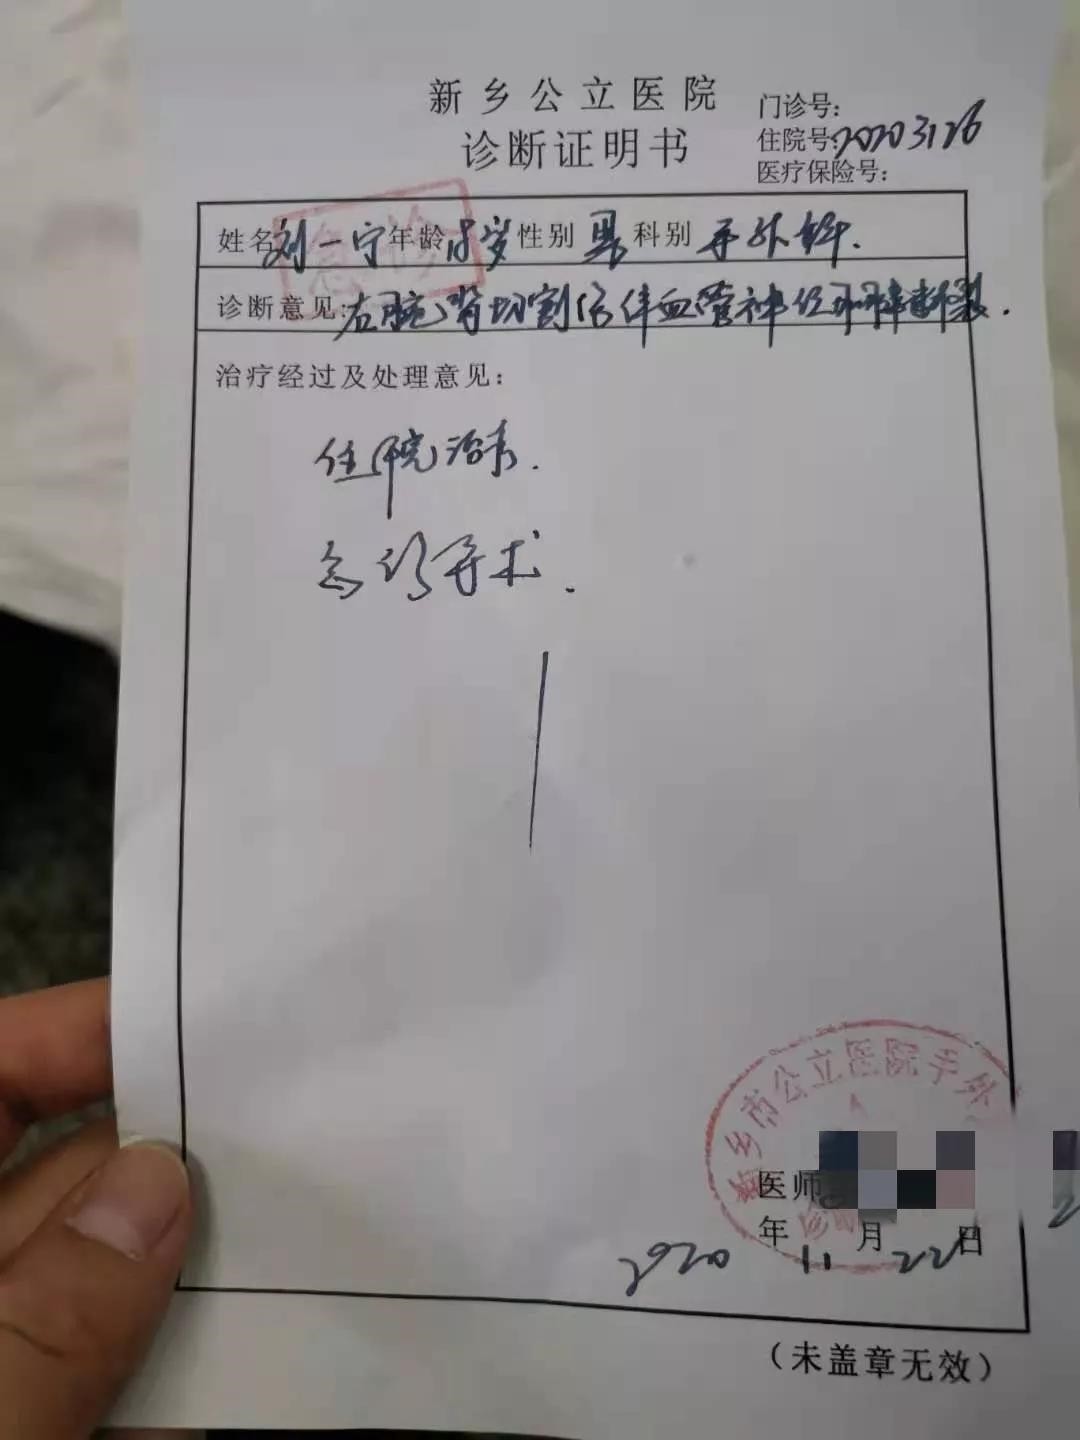 新乡公立医院
诊断证明书
门诊号:
住院号:20203126
医疗保险号:
急诊
姓名 刘一宁 年龄 岁 性别 男 科别 手外科.
诊断意见: 右腕背切割伤伴血管神经肌腱断裂.
治疗经过及处理意见:
住院治疗.
急诊手术.
新乡市公立医院手外
诊断
医师
2020年11月22日
(未盖章无效)